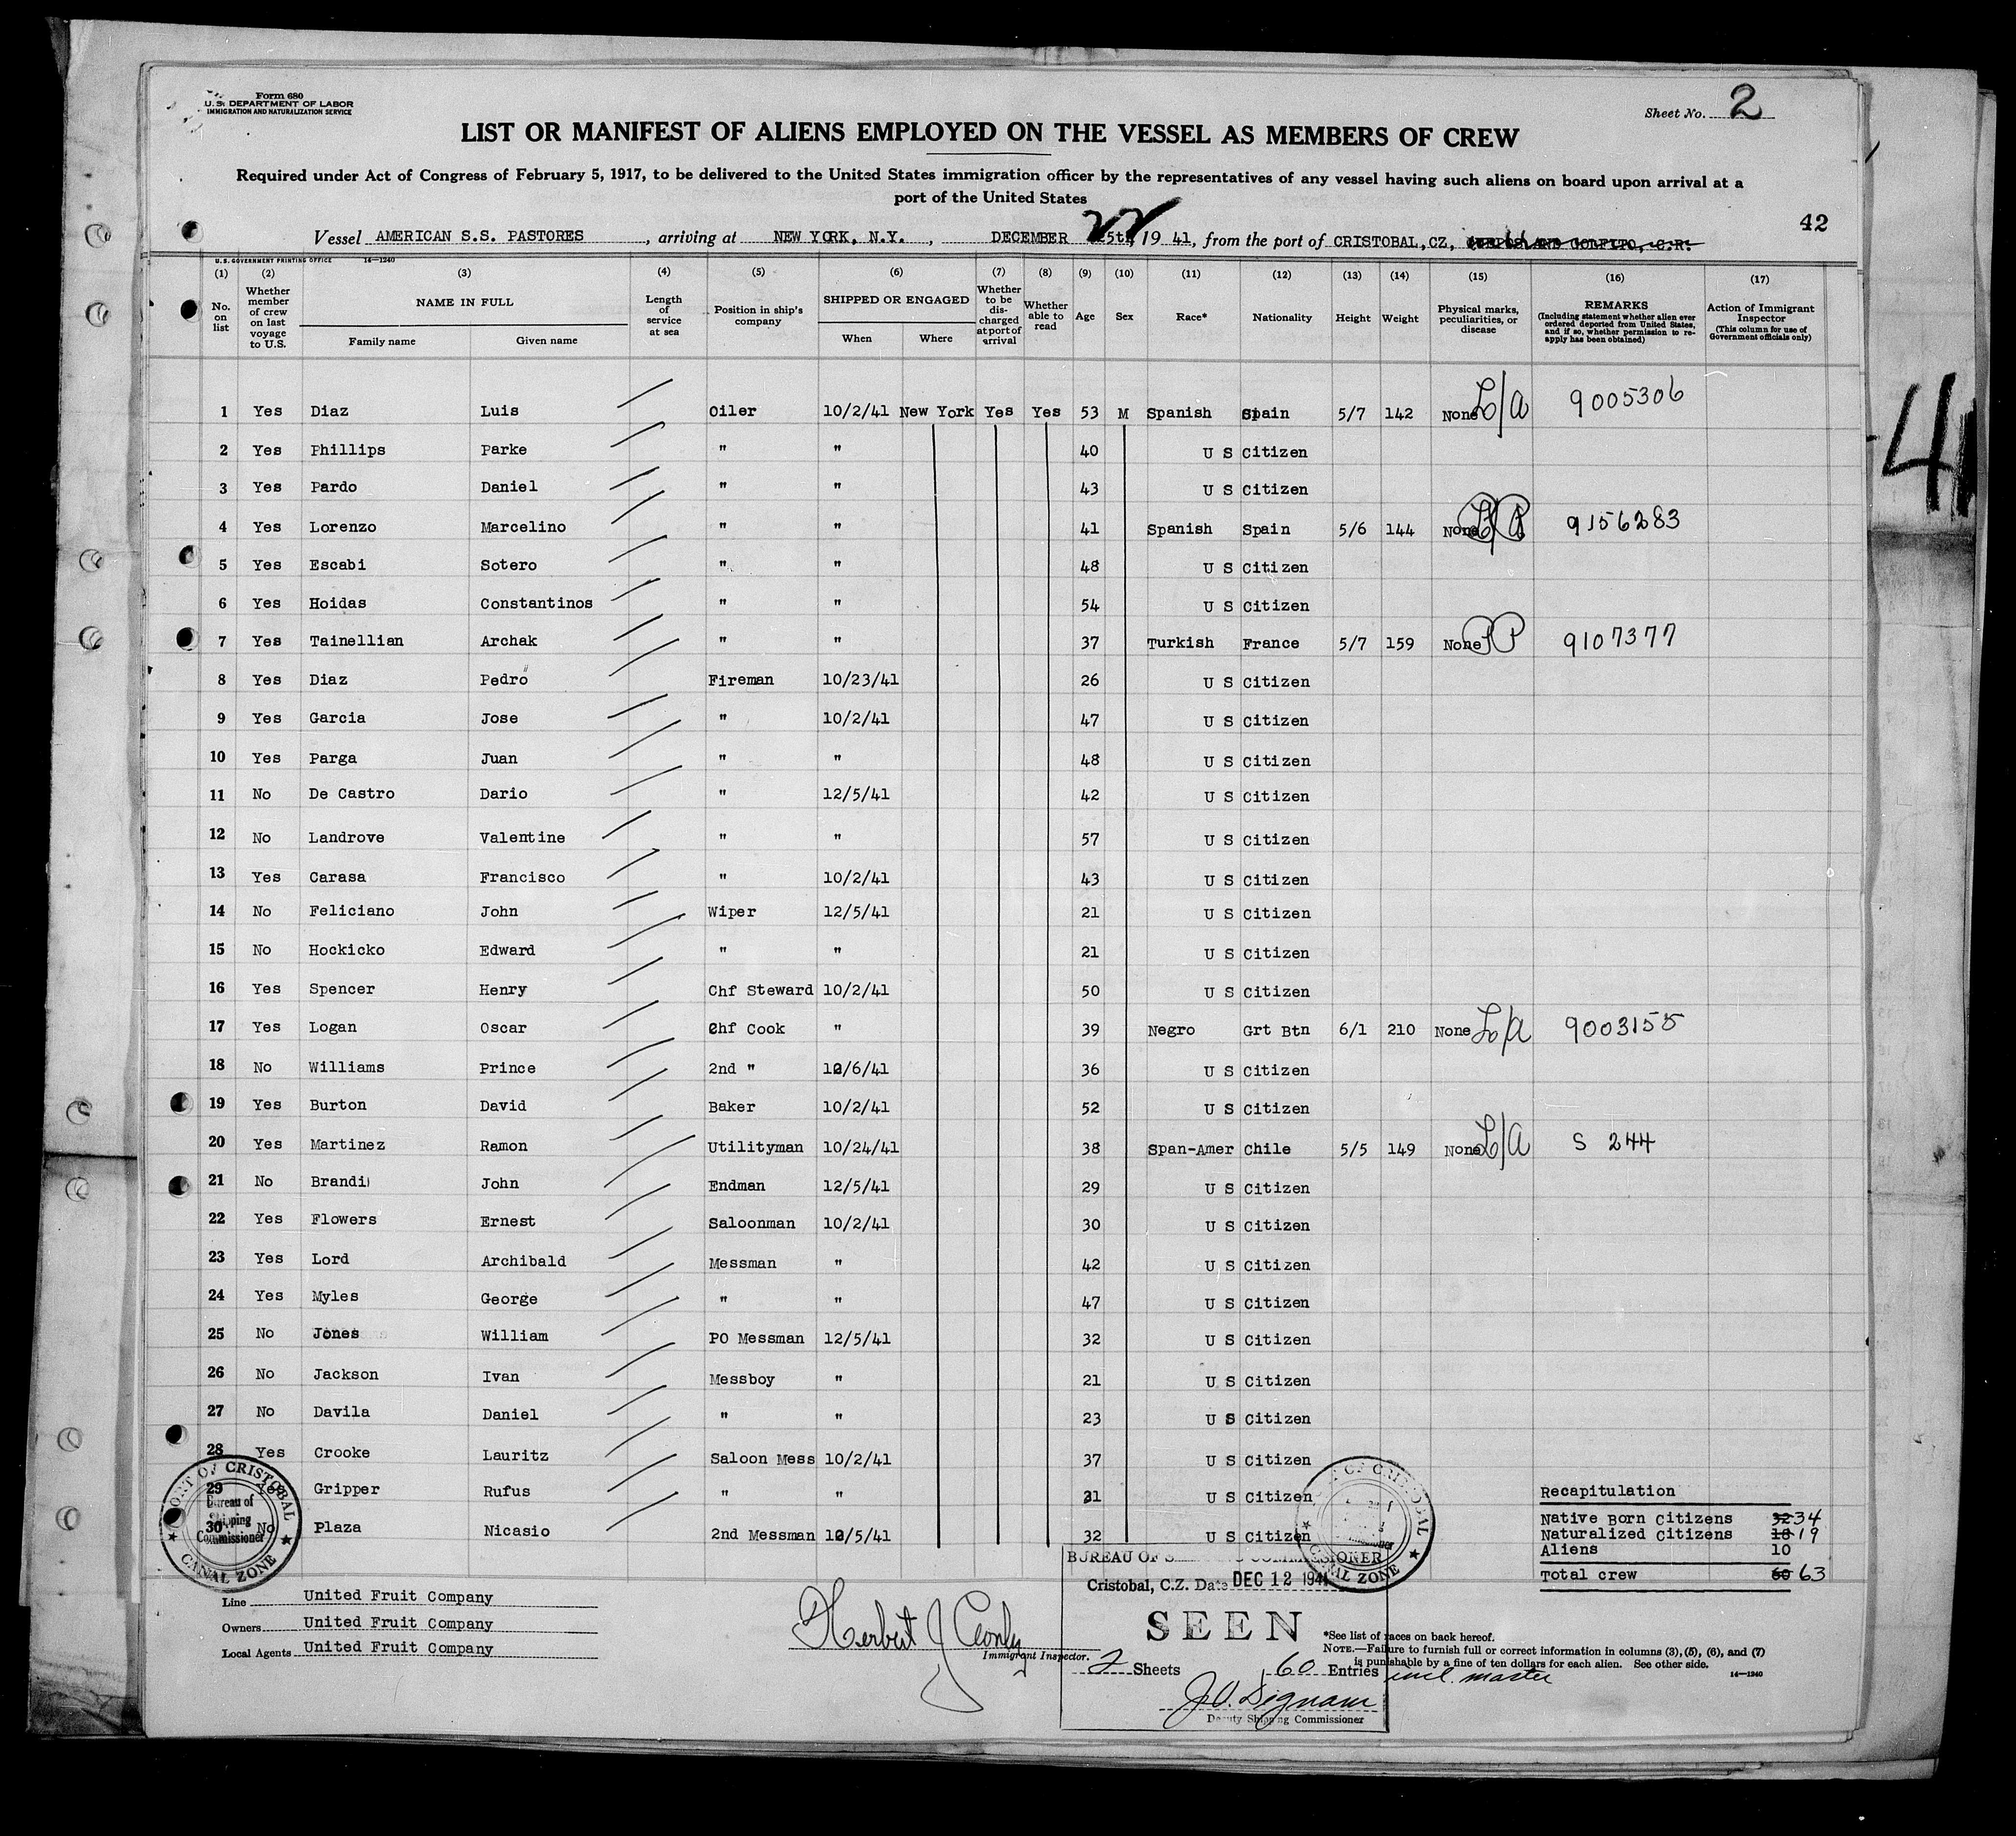 Form 680
U. S. DEPARTMENT OF LABOR
IMMIGRATION AND NATURALIZATION SERVICE
Sheet No. 2
LIST OR MANIFEST OF ALIENS EMPLOYED ON THE VESSEL AS MEMBERS OF CREW
Required under Act of Congress of February 5, 1917, to be delivered to the United States immigration officer by the representatives of any vessel having such aliens on board upon arrival at a
port of the United States
42
Vessel AMERICAN S.S. PASTORES, arriving at NEW YORK, N.Y., DECEMBER 22 1941, from the port of CRISTOBAL,CZ, AND GOLFITO, C.R.
U. S. GOVERNMENT PRINTING OFFICE 14—1240
(1) (2) (3) (4) (5) (6) (7) (8) (9) (10) (11) (12) (13) (14) (15) (16) (17)
No. on list
Whether member of crew on last voyage to U.S.
NAME IN FULL
Family name Given name
Length of service at sea
Position in ship's company
SHIPPED OR ENGAGED
When Where
Whether to be discharged at port of arrival
Whether able to read
Age
Sex
Race*
Nationality
Height
Weight
Physical marks, peculiarities, or disease
REMARKS
(Including statement whether alien ever ordered deported from United States, and if so, whether permission to reapply has been obtained)
Action of Immigrant Inspector
(This column for use of Government officials only)
1 Yes Diaz Luis Oiler 10/2/41 New York Yes Yes 53 M Spanish Spain 5/7 142 None L/A 9005306
2 Yes Phillips Parke " " 40 U S Citizen
3 Yes Pardo Daniel " " 43 U S Citizen
4 Yes Lorenzo Marcelino " " 41 Spanish Spain 5/6 144 None 9156283
5 Yes Escabi Sotero " " 48 U S Citizen
6 Yes Hoidas Constantinos " " 54 U S Citizen
7 Yes Tainellian Archak " " 37 Turkish France 5/7 159 None PP 9107377
8 Yes Diaz Pedro Fireman 10/23/41 26 U S Citizen
9 Yes Garcia Jose " 10/2/41 47 U S Citizen
10 Yes Parga Juan " " 48 U S Citizen
11 No De Castro Dario " 12/5/41 42 U S Citizen
12 No Landrove Valentine " " 57 U S Citizen
13 Yes Carasa Francisco " 10/2/41 43 U S Citizen
14 No Feliciano John Wiper 12/5/41 21 U S Citizen
15 No Hockicko Edward " " 21 U S Citizen
16 Yes Spencer Henry Chf Steward 10/2/41 50 U S Citizen
17 Yes Logan Oscar Chf Cook " 39 Negro Grt Btn 6/1 210 None L/A 9003155
18 No Williams Prince 2nd " 12/6/41 36 U S Citizen
19 Yes Burton David Baker 10/2/41 52 U S Citizen
20 Yes Martinez Ramon Utilityman 10/24/41 38 Span-Amer Chile 5/5 149 None L/A S 244
21 No Brandi John Endman 12/5/41 29 U S Citizen
22 Yes Flowers Ernest Saloonman 10/2/41 30 U S Citizen
23 Yes Lord Archibald Messman " 42 U S Citizen
24 Yes Myles George " " 47 U S Citizen
25 No Jones William PO Messman 12/5/41 32 U S Citizen
26 No Jackson Ivan Messboy " 21 U S Citizen
27 No Davila Daniel " " 23 U S Citizen
28 Yes Crooke Lauritz Saloon Mess 10/2/41 37 U S Citizen
29 Yes Gripper Rufus " " 31 U S Citizen
30 No Plaza Nicasio 2nd Messman 12/5/41 32 U S Citizen
PORT OF CRISTOBAL
Bureau of Shipping Commissioner
CANAL ZONE
Recapitulation
Native Born Citizens 32 34
Naturalized Citizens 18 19
Aliens 10
Total crew 60 63
Line United Fruit Company
Owners United Fruit Company
Local Agents United Fruit Company
Herbert J
Immigrant Inspector.
BUREAU OF COMMISSIONER
Cristobal, C.Z. Date DEC 12 1941
SEEN
2 Sheets 60 Entries incl. master
J.O. Dignam
Deputy Shipping Commissioner
PORT OF CRISTOBAL
CANAL ZONE
*See list of races on back hereof.
NOTE.—Failure to furnish full or correct information in columns (3), (5), (6), and (7)
is punishable by a fine of ten dollars for each alien. See other side.
14—1240
4